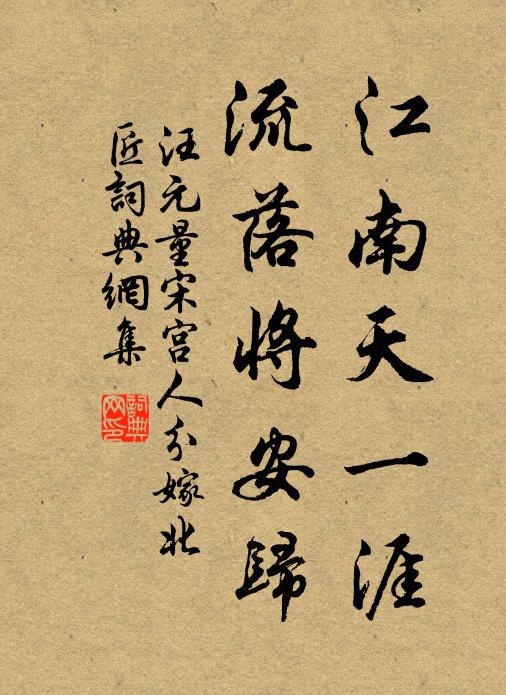 江南天一涯
流落將安歸
汪元量宋宮人分嫁北
匠詞典網集
詞典网印